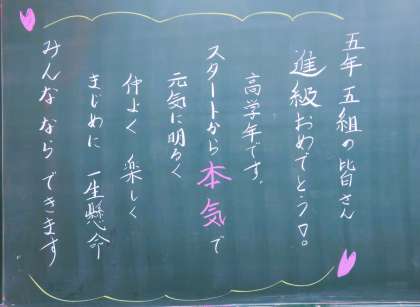 五年五組の皆さん
進級おめでとう♡。
高学年です。
スタートから本気で
元気に明るく
仲よく楽しく
まじめに一生懸命
みんなならできます